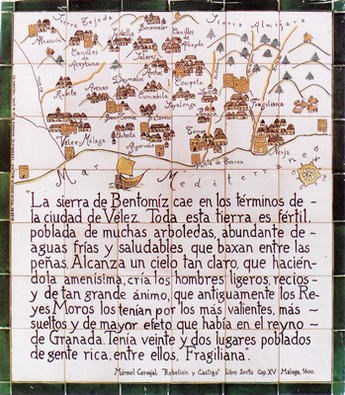 Sierra Tejeda
Sierra Almijara
Sedella
Canillas de
Aceytuno
Arenas
Daymalos
Corumbela
Sayalonga
Competa
Frigiliana
Velez-Málaga
Algarrobo
Nerja
Mar Mediterraneo
"La sierra de Bentomíz cae en los términos de -
la ciudad de Vélez. Toda esta tierra es fértil,
poblada de muchas arboledas, abundante de -
aguas frías y saludables que baxan entre las
peñas. Alcanza un cielo tan claro, que hacién-
dola amenísima, cría los hombres ligeros, recios -
y de tan grande ánimo, que antiguamente los Re-
yes Moros los tenían por los más valientes, más -
sueltos y de mayor efeto que había en el reyno -
de Granada. Tenía veinte y dos lugares poblados
de gente rica, entre ellos, 'Fragiliana'."
Mármol Carvajal "Rebelión y Castigo" Libro Sexto Cap. XV Málaga, 1600.